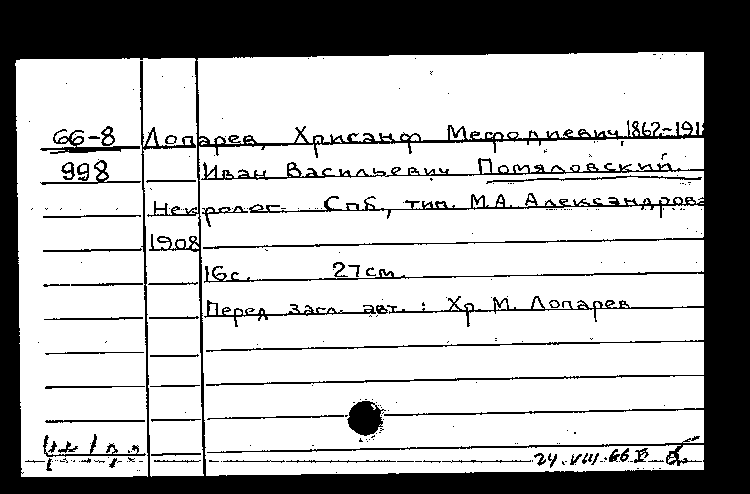 66-8 Лопарев, Хрисанф Мефодиевич, 1862-191
998 Иван Васильевич Помяловский.
Некролог. Спб., тип. М.А. Александрова
1908
16с. 27см.
Перед загл. авт.: Хр. М. Лопарев
24.VIII.66